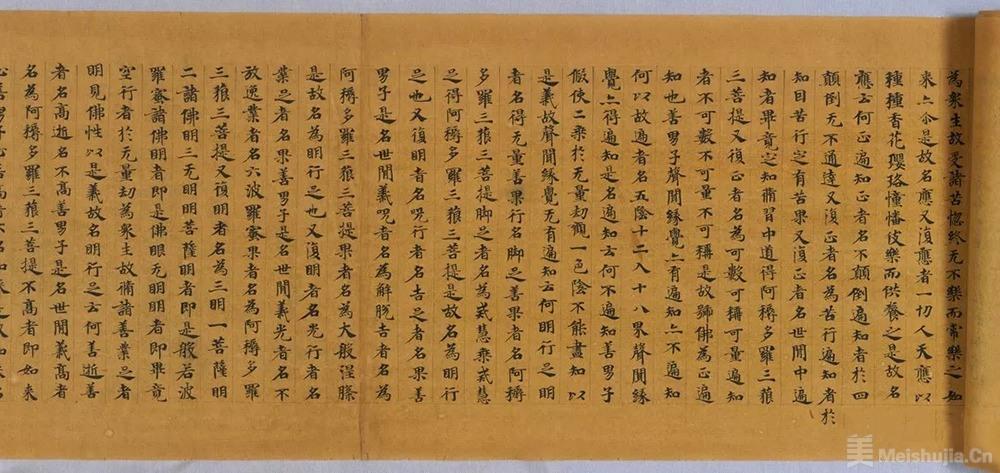 為衆生故受諸苦惱終无不樂而常樂之如
来亦尒是故名應又復應者一切人天應以
種種香花瓔珞幢幡伎樂而供養之是故名
應云何正遍知正者名不顛倒遍知者於四
顛倒无不通達又復正者名為苦行遍知者於
知因苦行定有苦果又復正者名世間中遍
知者畢竟定知脩習中道得阿耨多羅三藐
三菩提又復正者名為可數可稱可量遍知
者不可數不可量不可稱是故號佛為正遍
知也善男子聲聞緣覺亦有遍知亦不遍知
何以故遍者名五陰十二入十八界聲聞緣
覺亦得遍知是名遍知云何不遍知善男子
假使二乗於无量劫觀一色陰不能盡知以
是義故聲聞緣覺无有遍知云何明行足明
者名得无量善果行名脚足善果者名阿耨
多羅三藐三菩提脚足者名為戒慧乗戒慧
足得阿耨多羅三藐三菩提是故名為明行
足也又復明者名呪行者名吉足者名果善
男子是名世間義呪者名為解脫吉者名為
阿耨多羅三藐三菩提果者名為大般涅槃
是故名為明行足也又復明者名光行者名
業足者名果善男子是名世間義光者名不
放逸業者名六波羅蜜果者名為阿耨多羅
三藐三菩提又復明者名為三明一菩薩明
二諸佛明三无明明菩薩明者即是般若波
羅蜜諸佛明者即是佛眼无明明者即畢竟
空行者於无量劫為衆生故脩諸善業足者
明見佛性以是義故名明行足云何善逝善
者名高逝名不高善男子是名世間義高者
名為阿耨多羅三藐三菩提不高者即如来
美 Meishujia.Cn